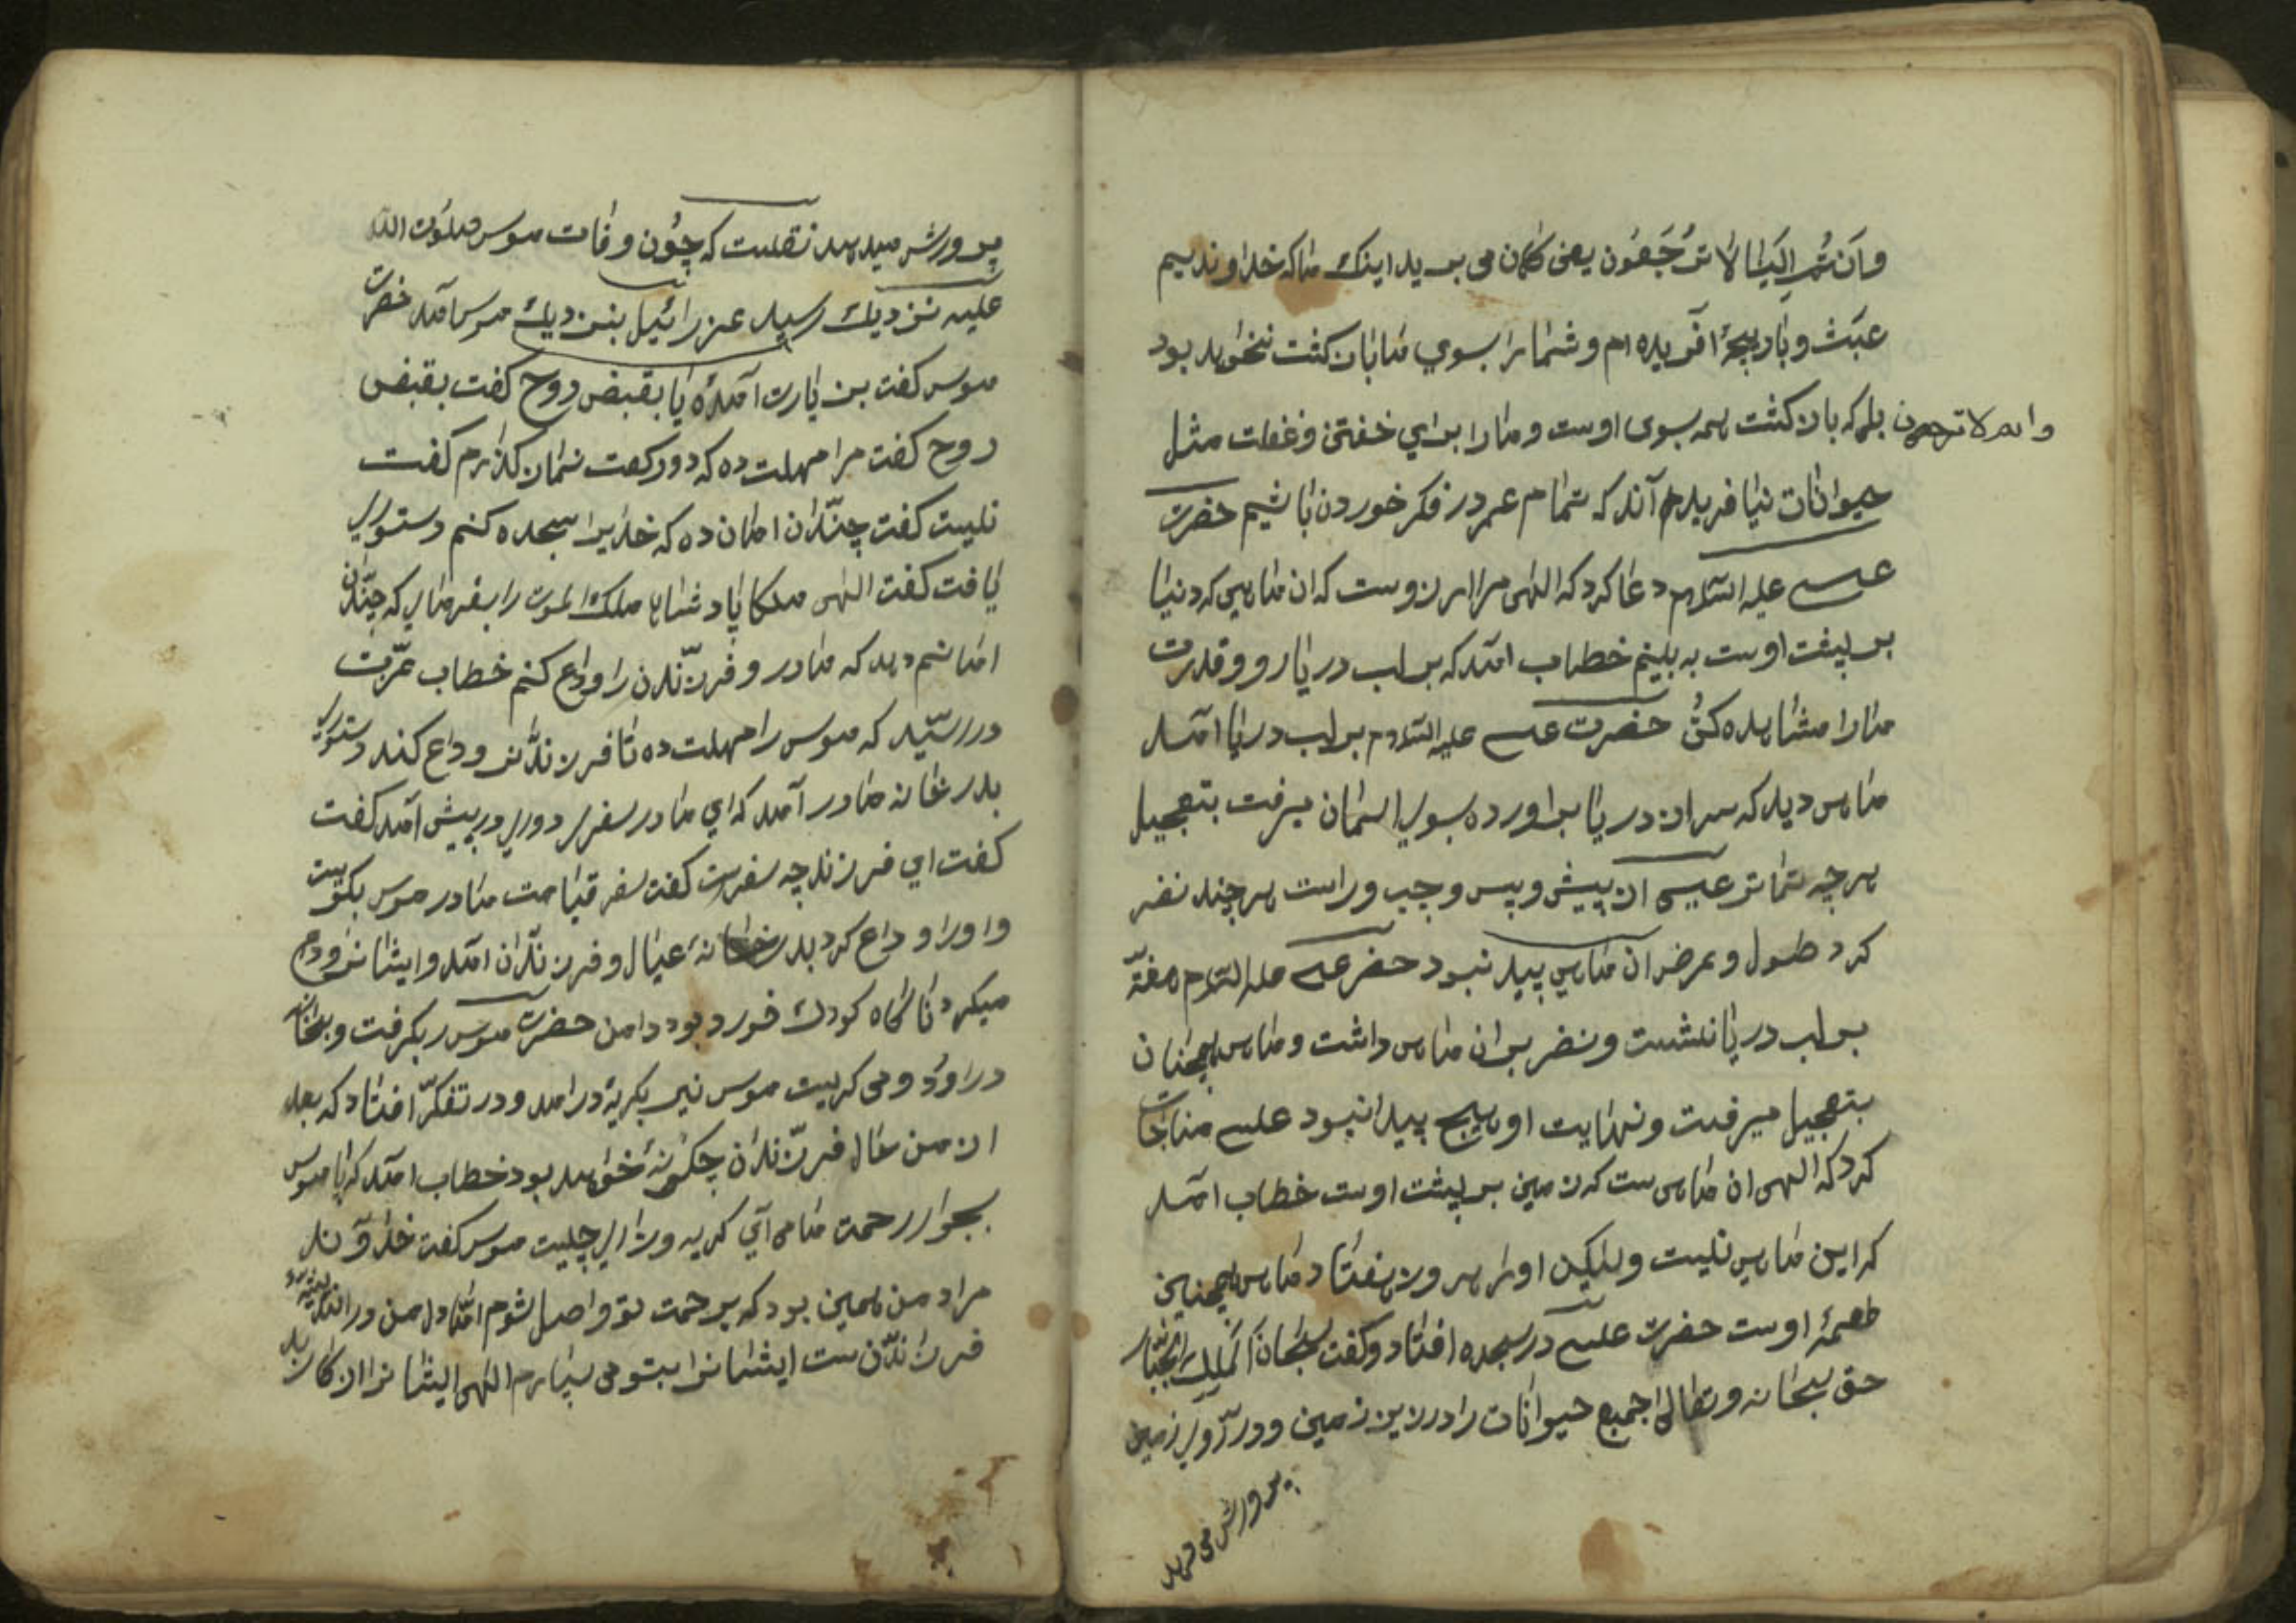 وانتم الینا لا ترجعون یعنی کمان می برید اینک ماکه خداوندیم
عبث وبازیچهٔ آفریده ام وشما را بسوي ما بازکشت نخواهد بود
بلکه بازکشت همه بسوی اوست ومارا برای خفتن وغفلت مثل
حیوانات نیافریده اند که تمام عمر در فکر خوردن باشیم حضرت
عیسی علیه السلام دعا کرد که الهی مرا ارزوست که ان ماهی که دنیا
بر پشت اوست به بینم خطاب امد که بر لب دریا رو وقدرت
مارا مشاهده کن حضرت عیسی علیه السلام بر لب دریا امد
ماهی دید که سر از دریا براورده بسوی اسمان میرفت بتعجیل
هرچه تمامتر عیسی از پیش وپس وچپ وراست هرچند نظر
کرد طول وعرض ان ماهی پدید نبود حضرت عیسی علیه السلام هفته
بر لب دریا نشست ونظر بر ان ماهی داشت وماهی همچنان
بتعجیل میرفت ونهایت او هیچ پیدا نبود عیسی مناجات
کرد که الهی ان ماهی ست که زمین بر پشت اوست خطاب امد
که این ماهی نیست ولیکن اورا هر روز هفتاد ماهی همچنین
طعمهٔ اوست حضرت عیسی در سجده افتاد وکفت سبحان الملک الجبار
حق سبحانه وتعالی جمیع حیوانات را در زیر زمین ودر روی زمین
پرورش می دهد
وانه لا ترجعون
پرورش میدهد نقلست که چون وفات موسی صلوت الله
علیه نزدیک رسید عزرائیل بنزدیک موسی امد حضرت
موسی کفت بزیارت امدهٔ یا بقبض روح کفت بقبض
روح کفت مرا مهلت ده که دو رکعت نماز کذارم کفت
نیست کفت چندان امان ده که خدایرا سجده کنم دستوری
یافت کفت الهی ملکا پادشاها ملک الموت را بفرمای که چندان
امانم دهد که مادر وفرزندان را وداع کنم خطاب عزت
در رسید که موسی را مهلت ده تا فرزندان وداع کند دستوری
بدر خانه مادر آمد که اي مادر سفری دوری در پیش آمد کفت
کفت اي فرزند چه سفرست کفت سفر قیامت مادر موسی بکریست
واورا وداع کرد بدر خانهٔ عیال وفرزندان امد وایشانرا وداع
میکرد ناکاه کودک خورد بود دامن حضرت موسی بکرفت
در اورد ومی کریست موسی نیز بکریه درامد ودر تفکر افتاد که بعد
از من حال فرزندان چکونه خواهد بود خطاب امد که یا موسی
بجوار رحمت ما می آي کریه وزاری چیست موسی کفت خداوند
مراد من همین بود که برحمت تو واصل شوم اما دل من
فرزندان ست ایشانرا بتو می سپارم الهی ایشانرا